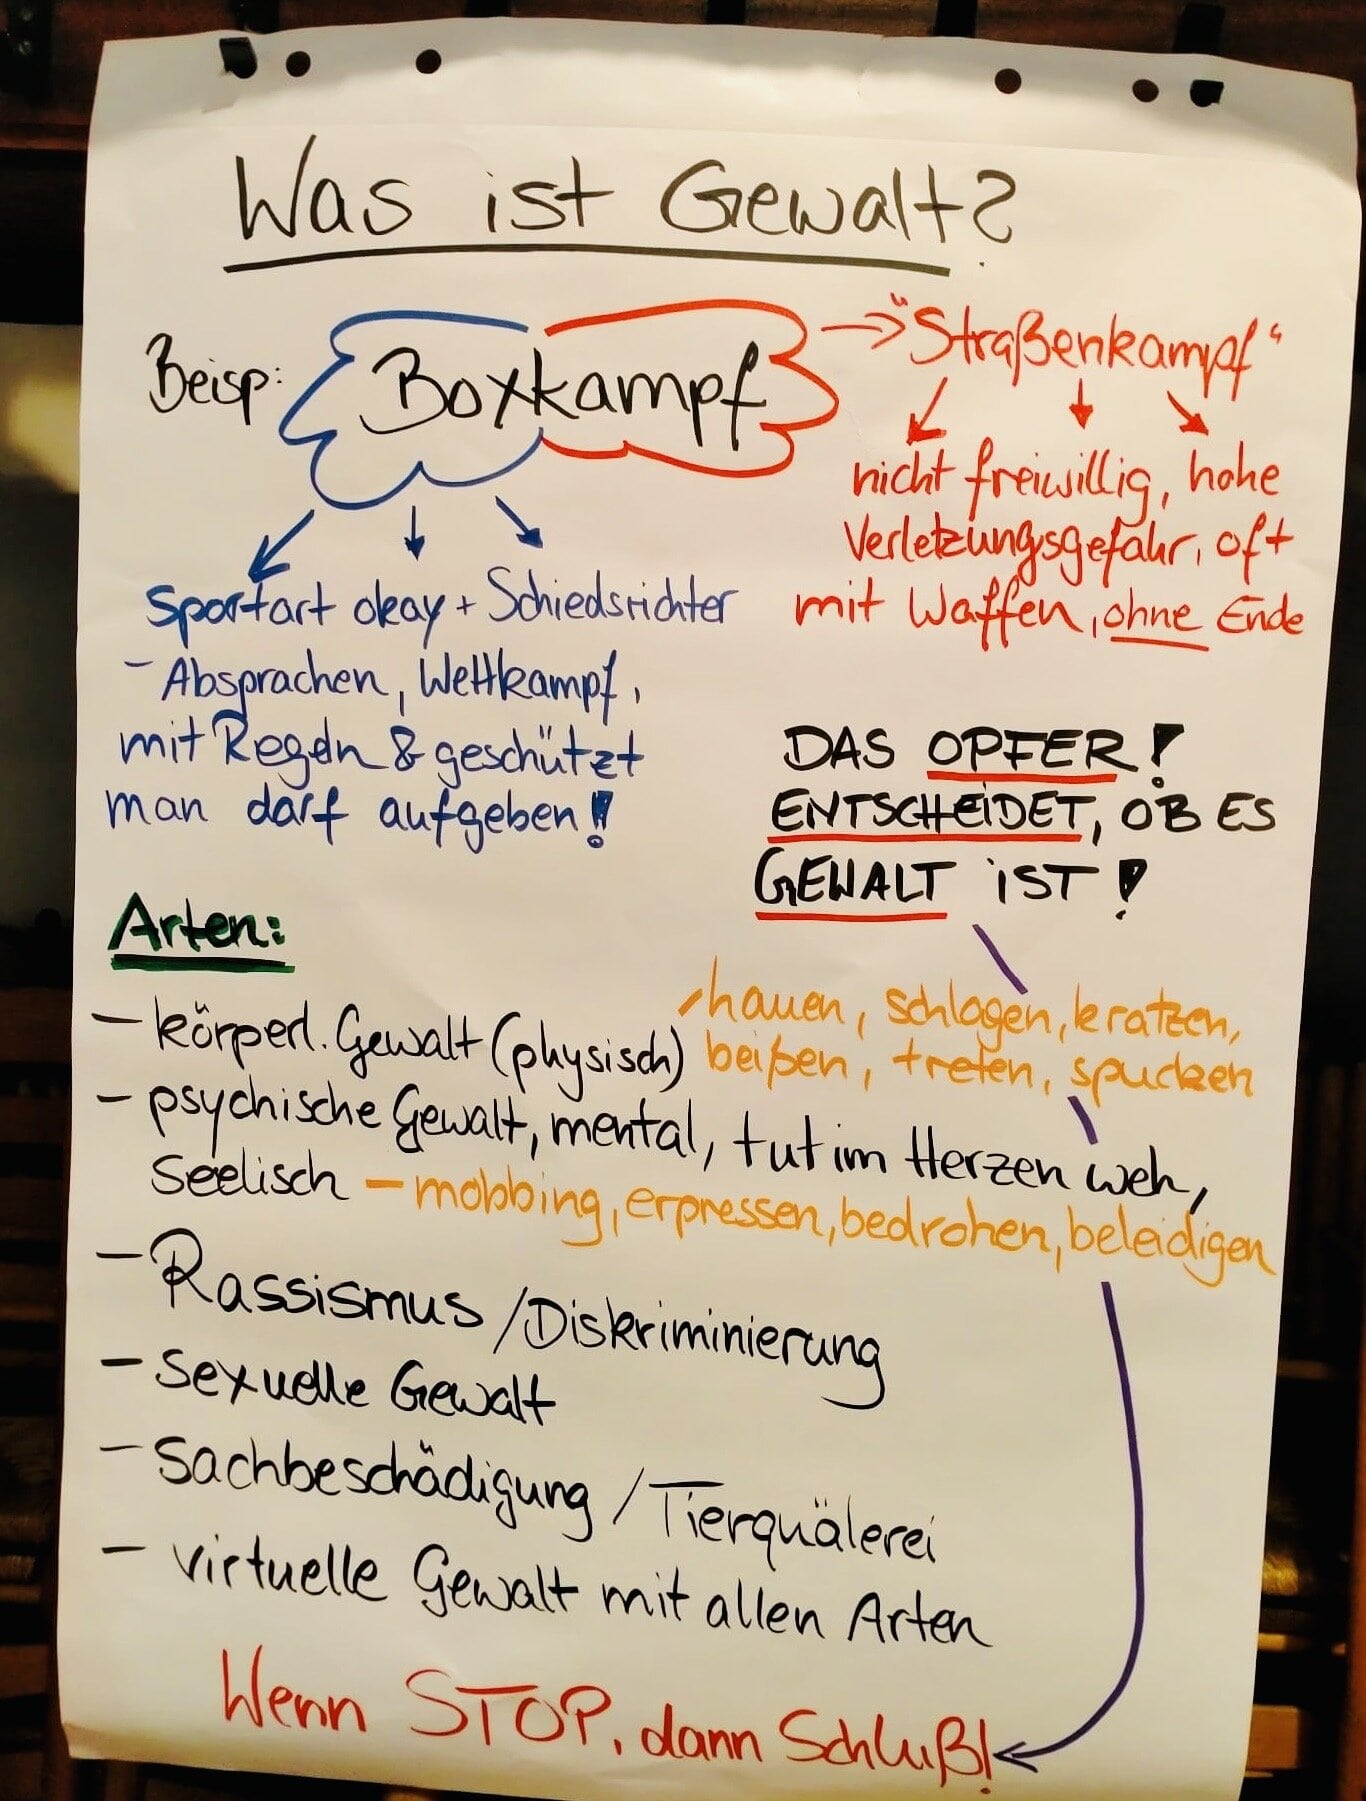 Was ist Gewalt?
Beisp: Boxkampf
→ "Straßenkampf"
nicht freiwillig, hohe
Verletzungsgefahr, oft
mit Waffen, ohne Ende
Sportart okay + Schiedsrichter
- Absprachen, Wettkampf,
mit Regeln & geschützt
man darf aufgeben!
DAS OPFER!
ENTSCHEIDET, OB ES
GEWALT IST!
Arten:
- körperl. Gewalt (physisch)
- hauen, schlagen, kratzen,
beißen, treten, spucken
- psychische Gewalt, mental, tut im Herzen weh,
seelisch - mobbing, erpressen, bedrohen, beleidigen
- Rassismus / Diskriminierung
- sexuelle Gewalt
- Sachbeschädigung / Tierquälerei
- virtuelle Gewalt mit allen Arten
Wenn STOP, dann Schluß!